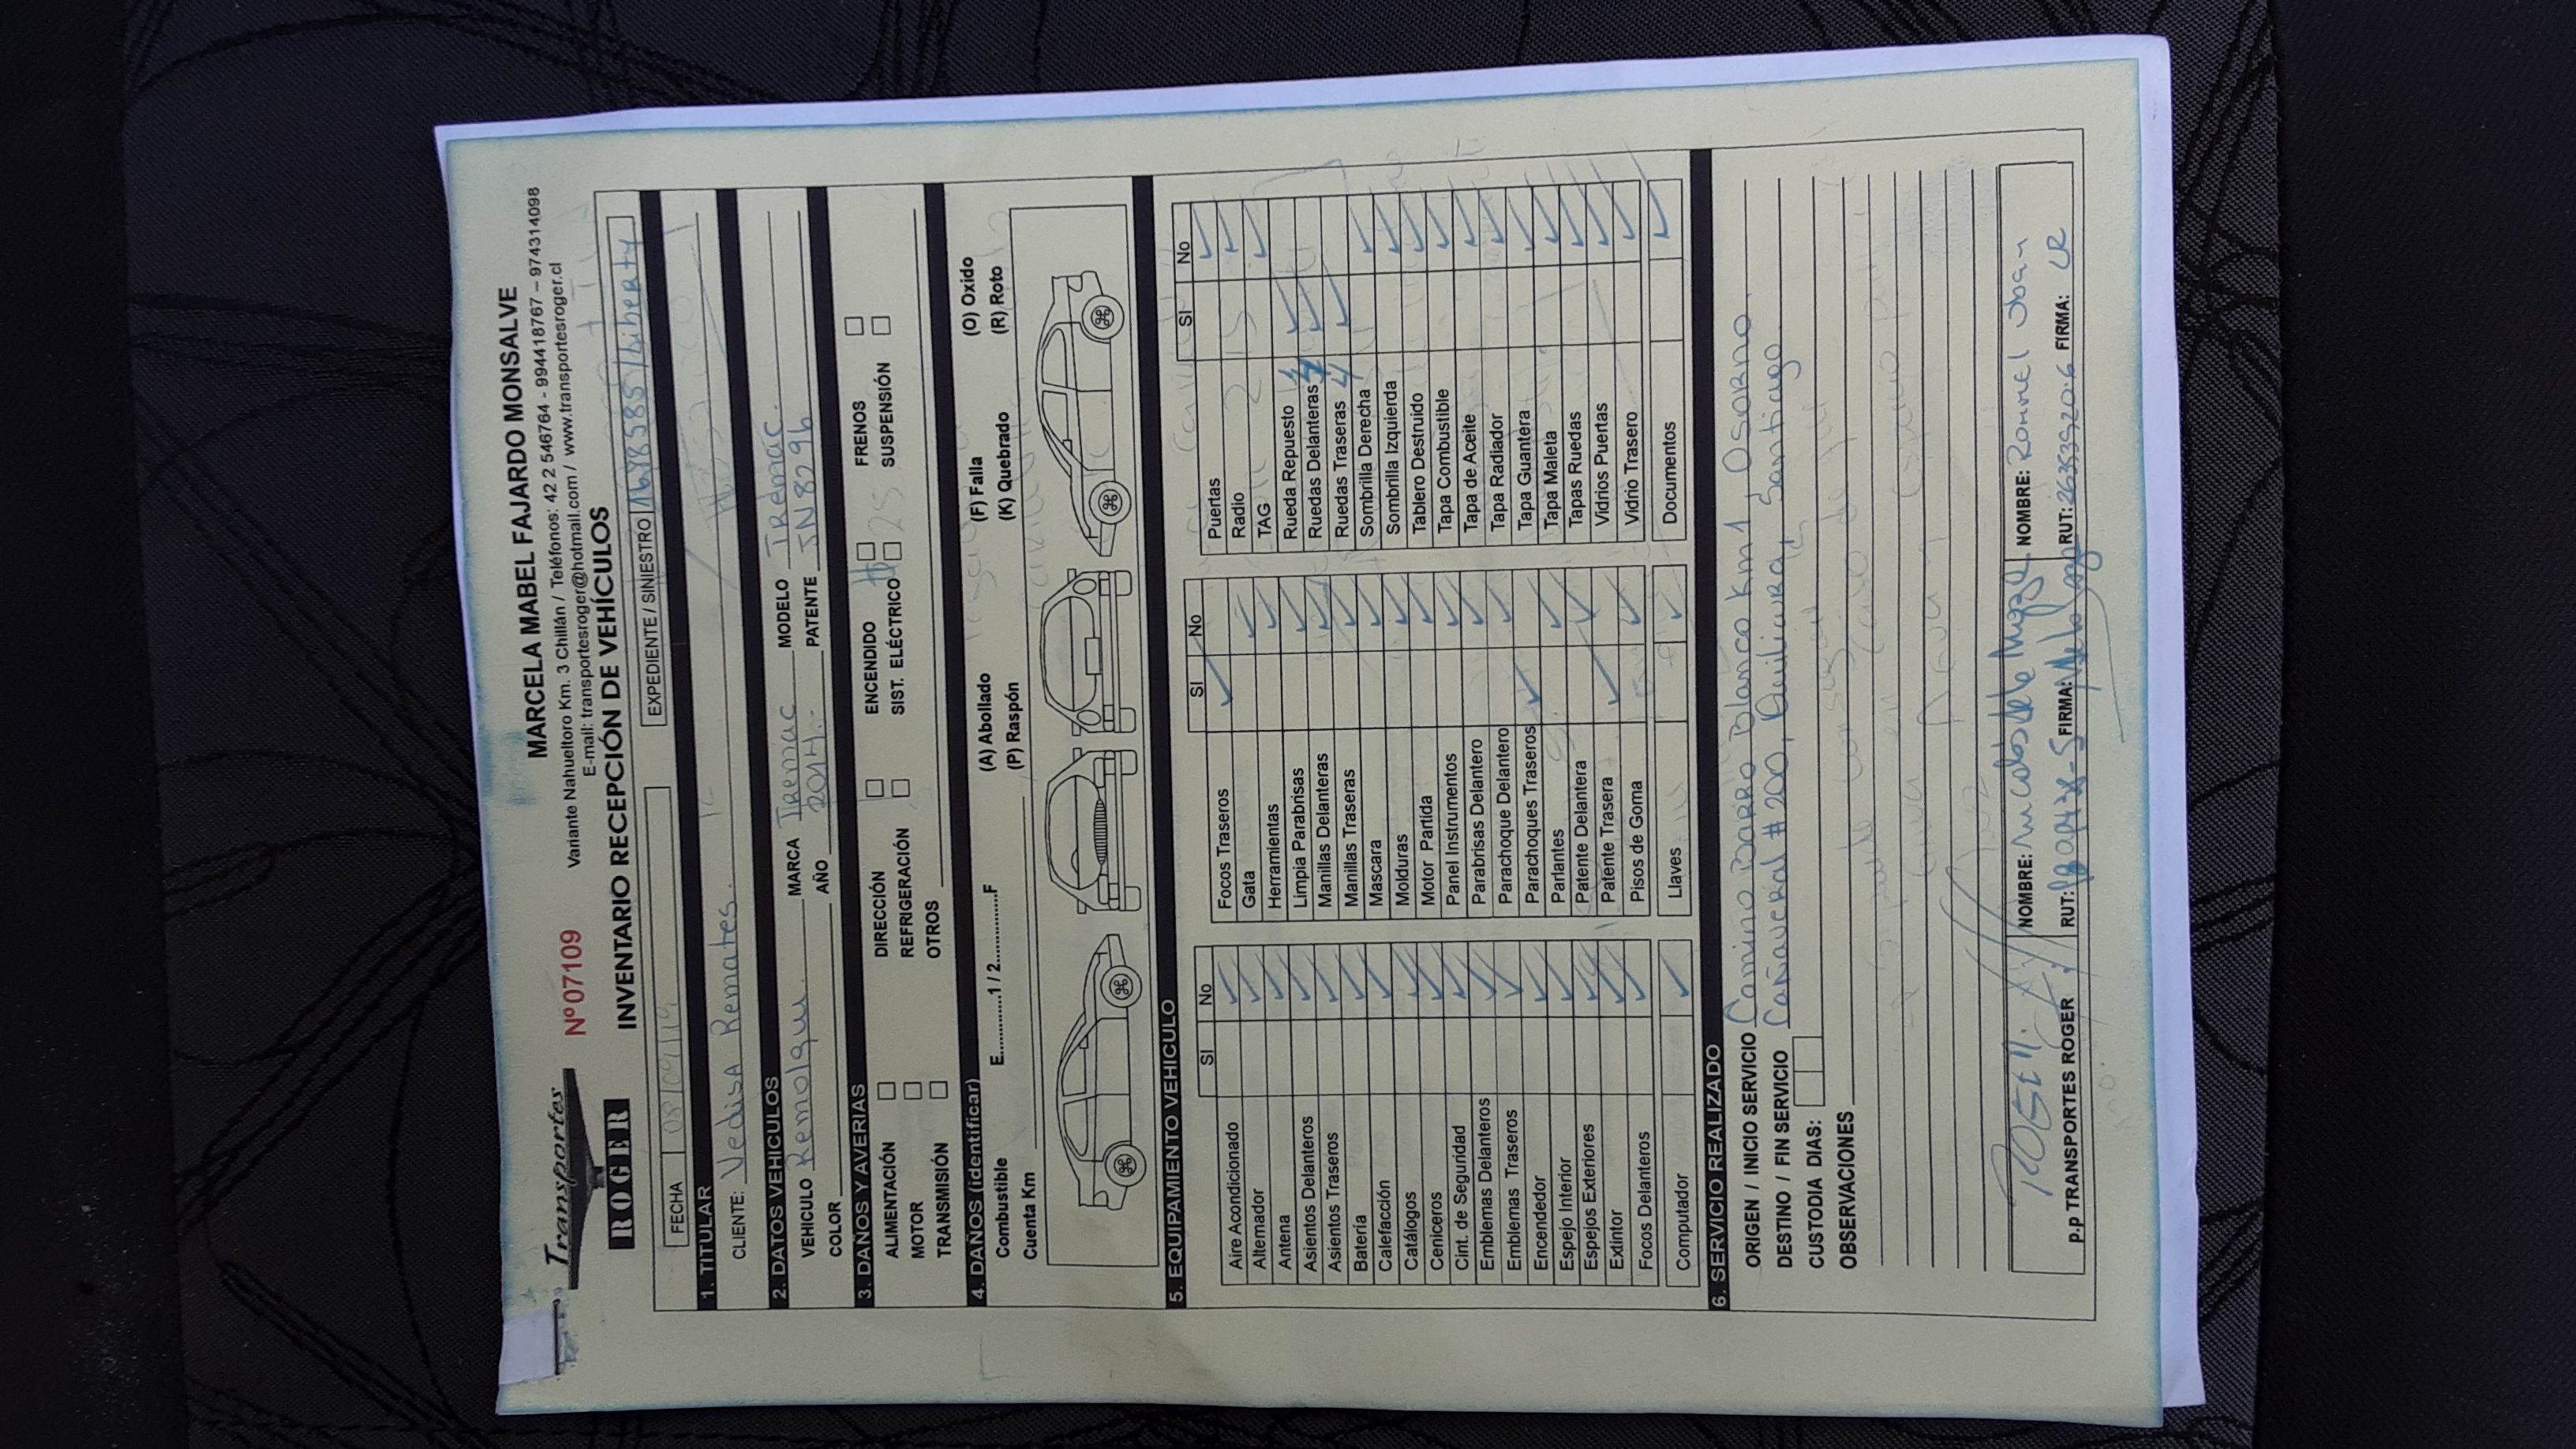 Transportes
ROGER
Nº 07109
MARCELA MABEL FAJARDO MONSALVE
Variante Nahueltoro Km. 3 Chillán / Teléfonos: 42 2 546764 - 994418767 – 974314098
E-mail: transportesroger@hotmail.com / www.transportesroger.cl
INVENTARIO RECEPCIÓN DE VEHÍCULOS
FECHA 08/09/19 EXPEDIENTE / SINIESTRO Liberty
1. TITULAR
CLIENTE: Vedisa Remates.
2. DATOS VEHICULOS
VEHICULO Remolque. MARCA Tremac MODELO Tremac.
COLOR AÑO 2014.- PATENTE JN8296
3. DAÑOS Y AVERIAS
ALIMENTACIÓN DIRECCIÓN ENCENDIDO FRENOS
MOTOR REFRIGERACIÓN SIST. ELÉCTRICO SUSPENSIÓN
TRANSMISIÓN OTROS
4. DAÑOS (identificar)
Combustible E............1 / 2..............F (A) Abollado (F) Falla (O) Oxido
Cuenta Km (P) Raspón (K) Quebrado (R) Roto
5. EQUIPAMIENTO VEHICULO
SI No SI No SI No
Aire Acondicionado Focos Traseros Puertas
Alternador Gata Radio
Antena Herramientas TAG
Asientos Delanteros Limpia Parabrisas Rueda Repuesto
Asientos Traseros Manillas Delanteras Ruedas Delanteras
Batería Manillas Traseras Ruedas Traseras 4
Calefacción Mascara Sombrilla Derecha
Catálogos Molduras Sombrilla Izquierda
Ceniceros Motor Partida Tablero Destruido
Cint. de Seguridad Panel Instrumentos Tapa Combustible
Emblemas Delanteros Parabrisas Delantero Tapa de Aceite
Emblemas Traseros Parachoque Delantero Tapa Radiador
Encendedor Parachoques Traseros Tapa Guantera
Espejo Interior Parlantes Tapa Maleta
Espejos Exteriores Patente Delantera Tapas Ruedas
Extintor Patente Trasera Vidrios Puertas
Focos Delanteros Pisos de Goma Vidrio Trasero
Computador Llaves Documentos
6. SERVICIO REALIZADO
ORIGEN / INICIO SERVICIO Camino Barro Blanco Km 1, Osorno.
DESTINO / FIN SERVICIO Cañaveral #200, Quilicura, Santiago.
CUSTODIA DIAS:
OBSERVACIONES
NOMBRE: NOMBRE: Rommel
p.p TRANSPORTES ROGER RUT: FIRMA: RUT: 26353520-6 FIRMA: